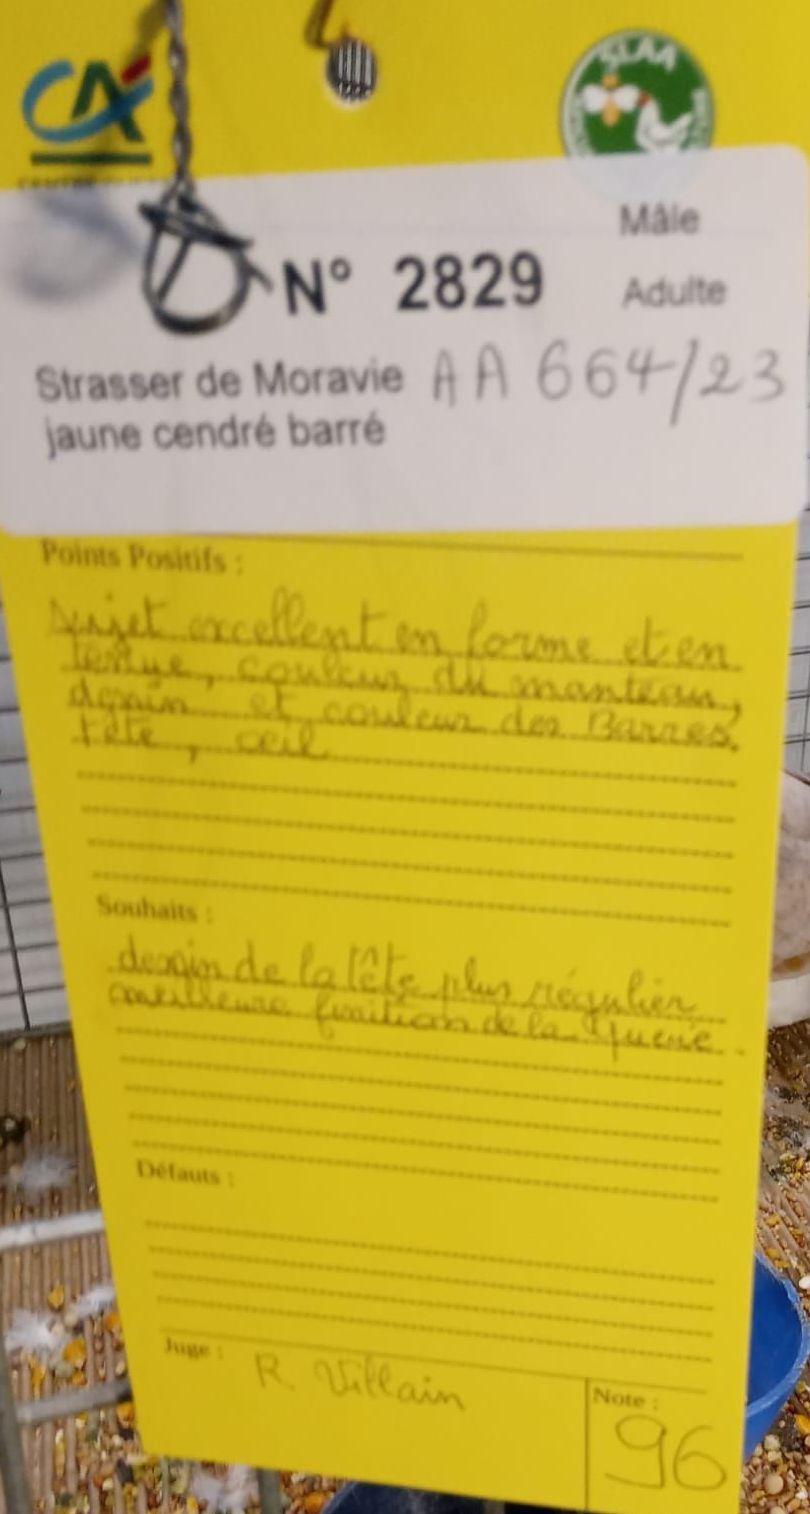 CA
SLAA
Mâle
N° 2829
Adulte
Strasser de Moravie AA 664/23
jaune cendré barré
Points Positifs :
Sujet excellent en forme et en
tenue, couleur du manteau,
dessin et couleur des Barres,
tête, œil
Souhaits :
dessin de la tête plus régulier
meilleure finition de la queue.
Défauts :
Juge : R. Villain
Note :
96